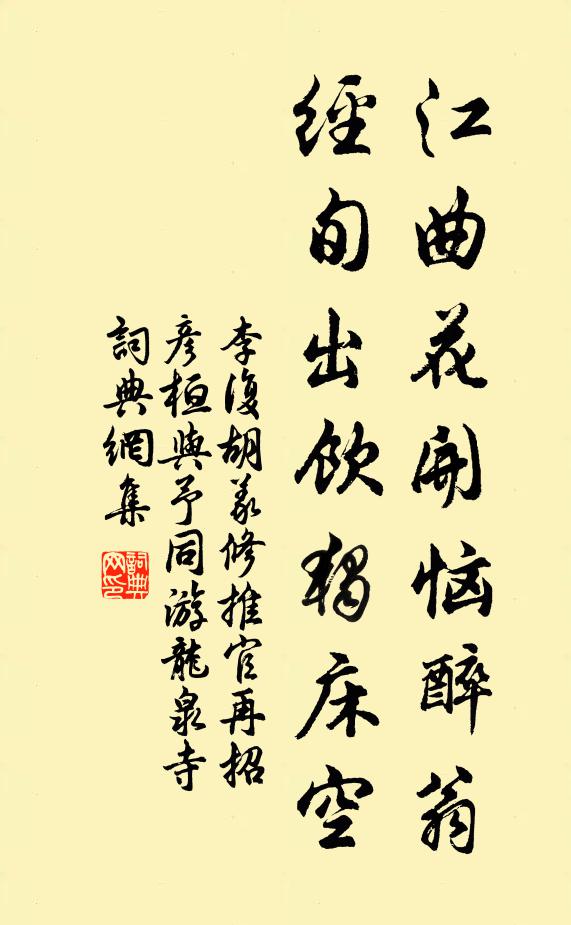 江曲花開惱醉翁
經旬出飲獨床空
李復胡義修推官再招
彥桓與予同游龍泉寺
詞典網集
詞典網印